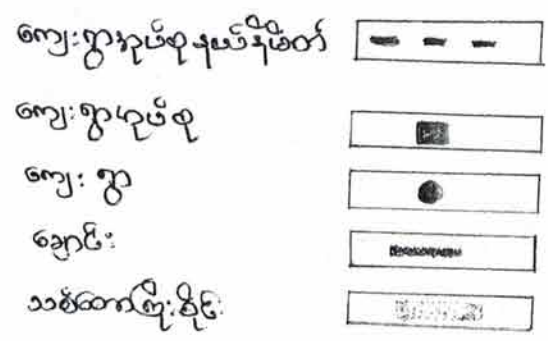 ကျေးရွာအုပ်စုနယ်နိမိတ်
ကျေးရွာအုပ်စု
ကျေးရွာ
ချောင်း
သစ်တောကြိုးဝိုင်း